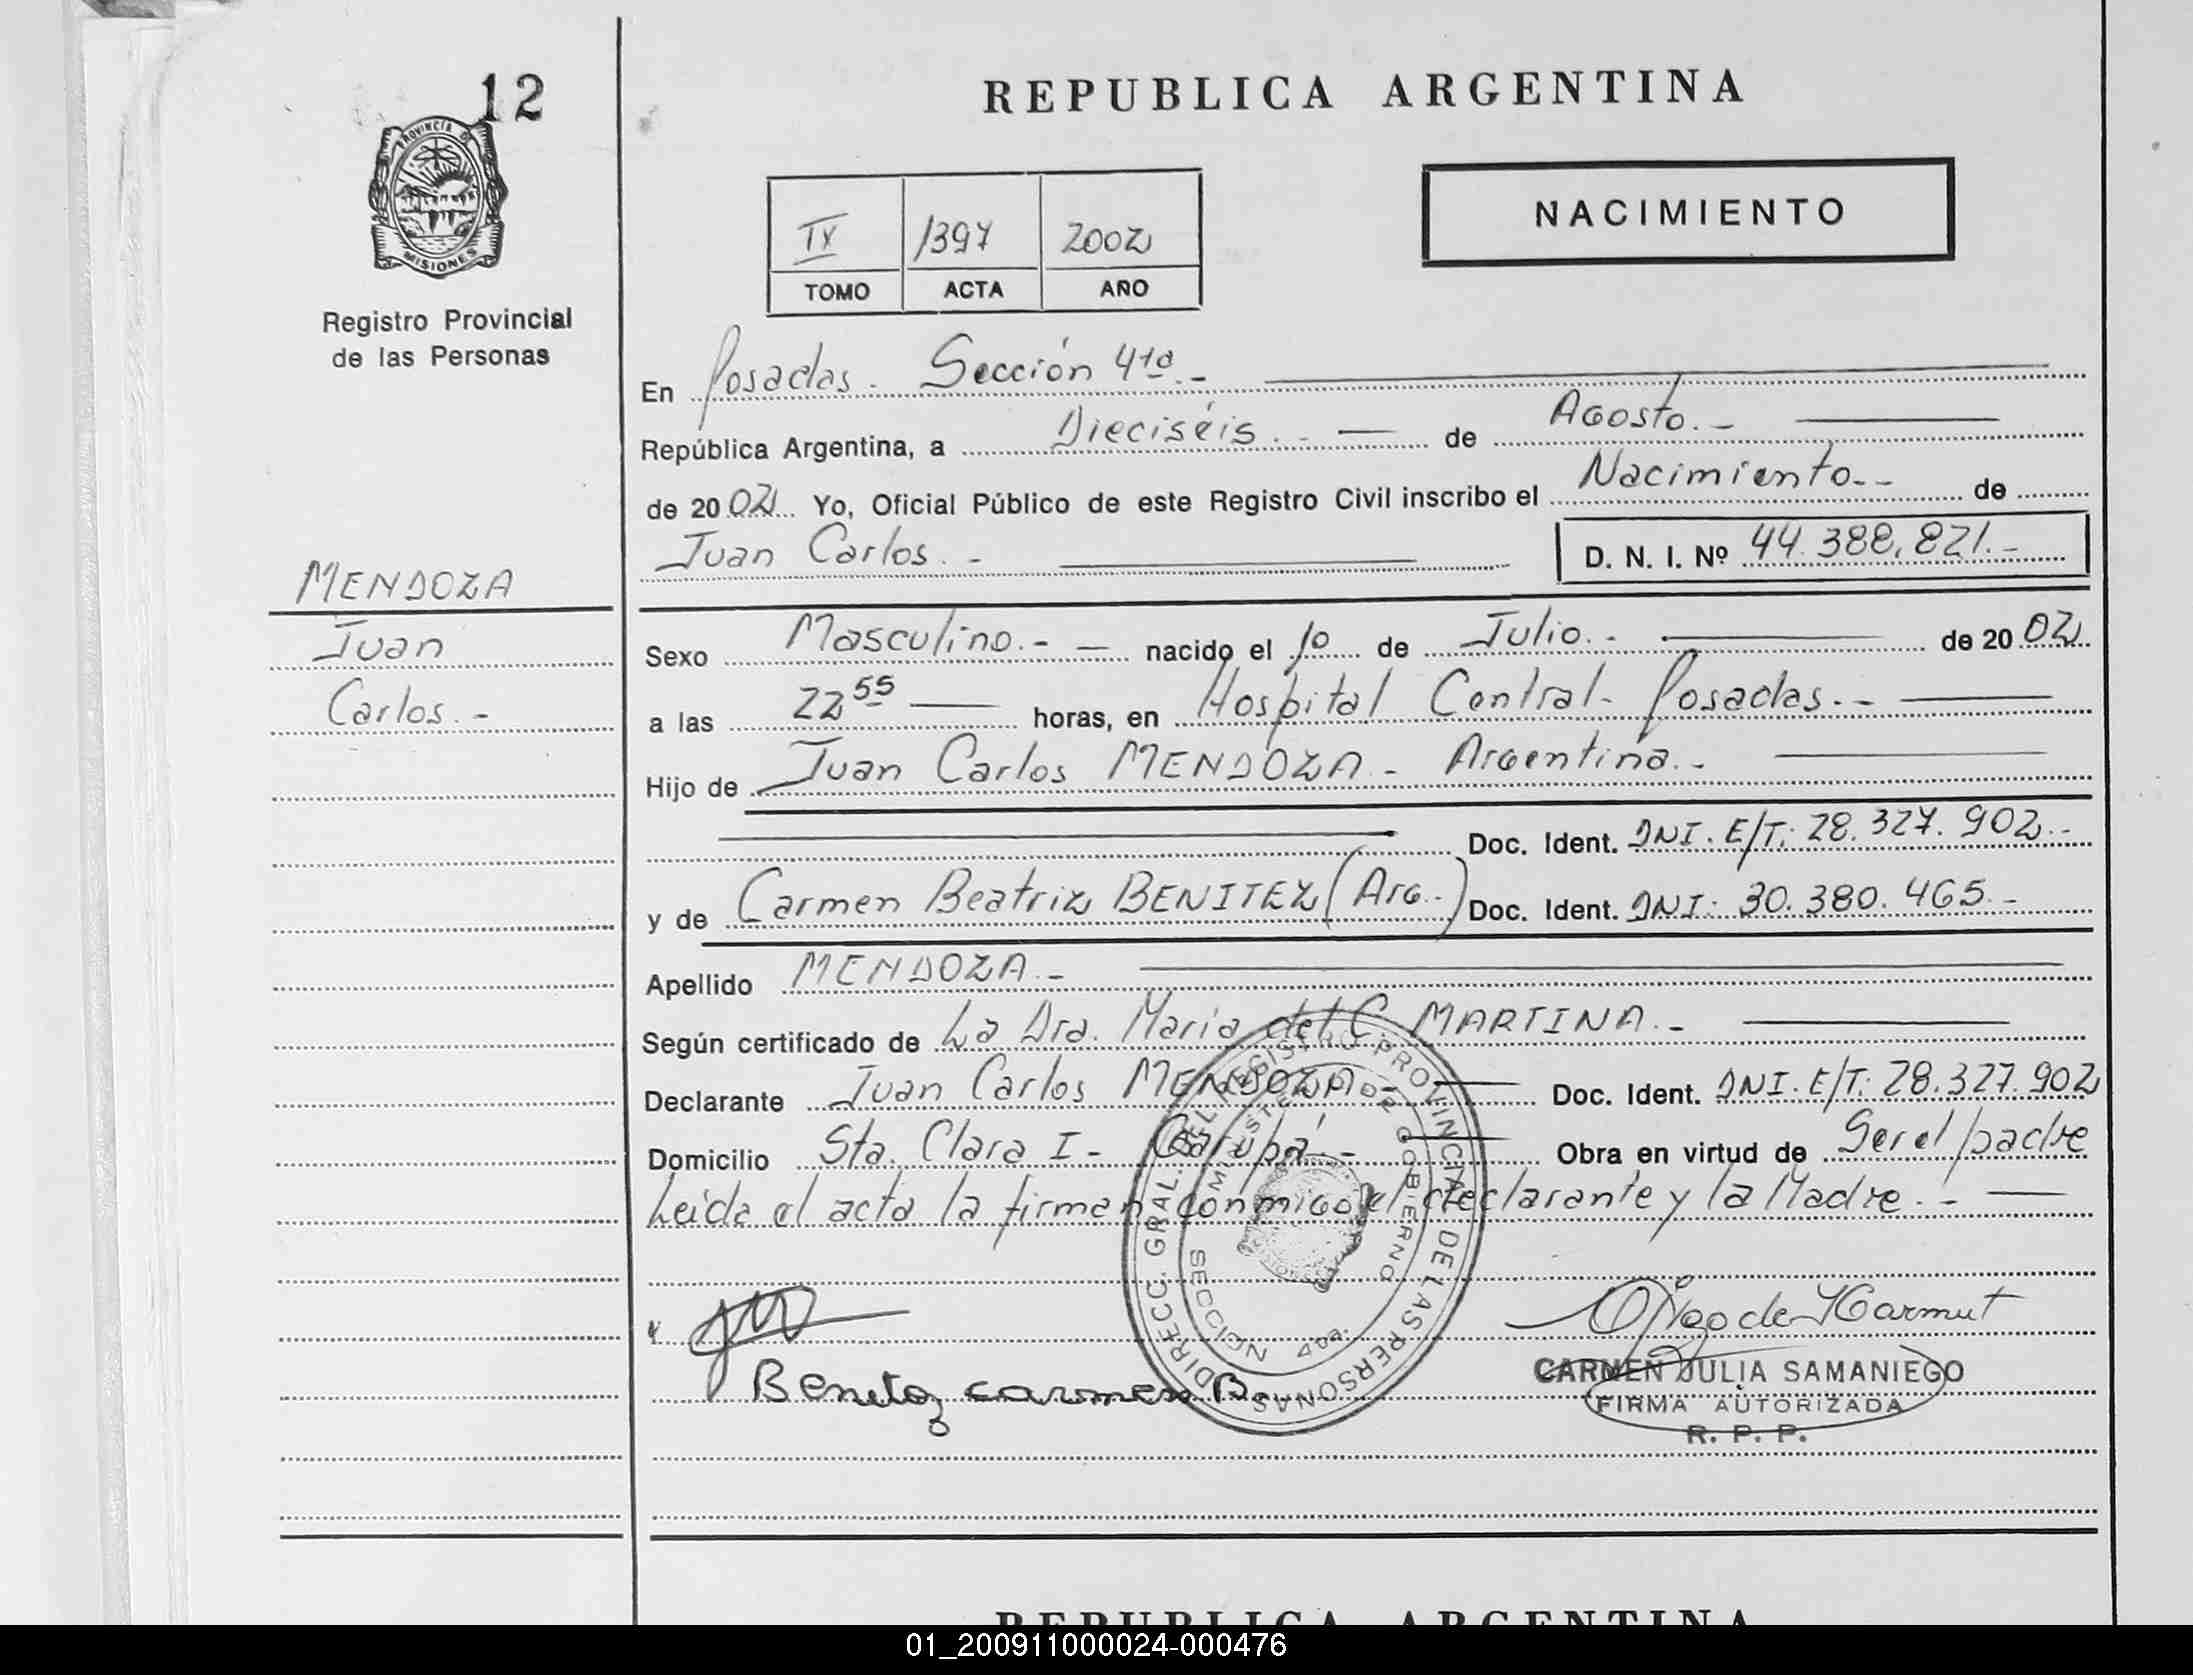 12
REPUBLICA ARGENTINA
PROVINCIA DE
MISIONES
Registro Provincial
de las Personas
IX 1397 2002
TOMO ACTA AÑO
NACIMIENTO
En Posadas. Sección 4ta.-
República Argentina, a Dieciséis.- de Agosto.-
de 2002 Yo, Oficial Público de este Registro Civil inscribo el Nacimiento.- de
Juan Carlos.- D. N. I. Nº 44.388.821.-
MENDOZA
Juan
Carlos.-
Sexo Masculino.- nacido el 10 de Julio.- de 2002
a las 22 55 horas, en Hospital Central- Posadas.-
Hijo de Juan Carlos MENDOZA- Argentina.-
Doc. Ident. DNI. E/T: 28.327.902.-
y de Carmen Beatriz BENITEZ (Arg.-) Doc. Ident. DNI: 30.380.465.-
Apellido MENDOZA.-
Según certificado de La Dra. María del C. MARTINA.-
Declarante Juan Carlos MENDOZA- Doc. Ident. DNI. E/T: 28.327.902
Domicilio Sta. Clara I- Garupá- Obra en virtud de Ser el padre
Leida el acta la firman conmigo el declarante y la Madre.-
DIRECC. GRAL. DEL REGISTRO PROVINCIAL DE LAS PERSONAS
MINISTERIO DE GOBIERNO
SECCION 4ta.
Benitez carmen B.
CARMEN JULIA SAMANIEGO
FIRMA AUTORIZADA
R. P. P.
REPUBLICA ARGENTINA
01_200911000024-000476